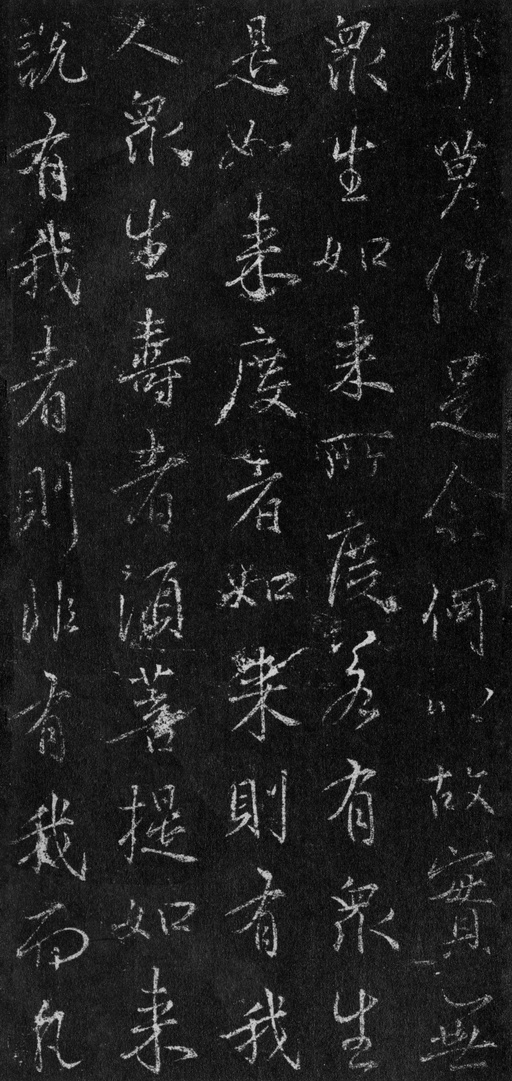 耶莫作是念何以故實無
眾生如來所度若有眾生
是如來度者如來則有我
人眾生壽者須菩提如來
說有我者則非有我而凡